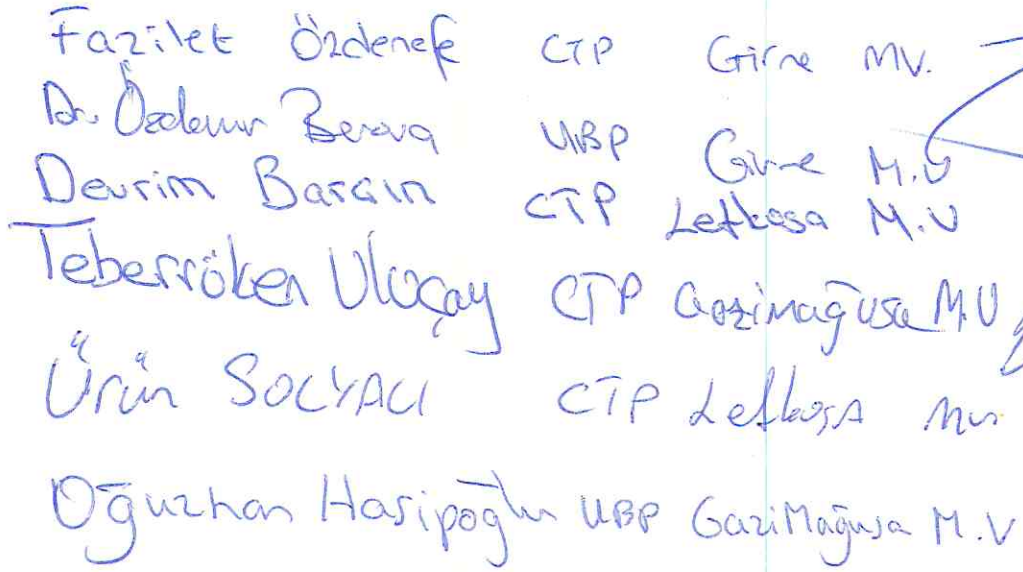 Fazilet Özdenefe CTP Girne MV.
Dr. Özdemir Berova UBP Girne M.V
Devrim Barçın CTP Lefkoşa M.V
Teberrüken Uluçay CTP Gazimağusa M.V
Ürün SOLYALI CTP Lefkoşa mv
Oğuzhan Hasipoğlu UBP GaziMağusa M.V